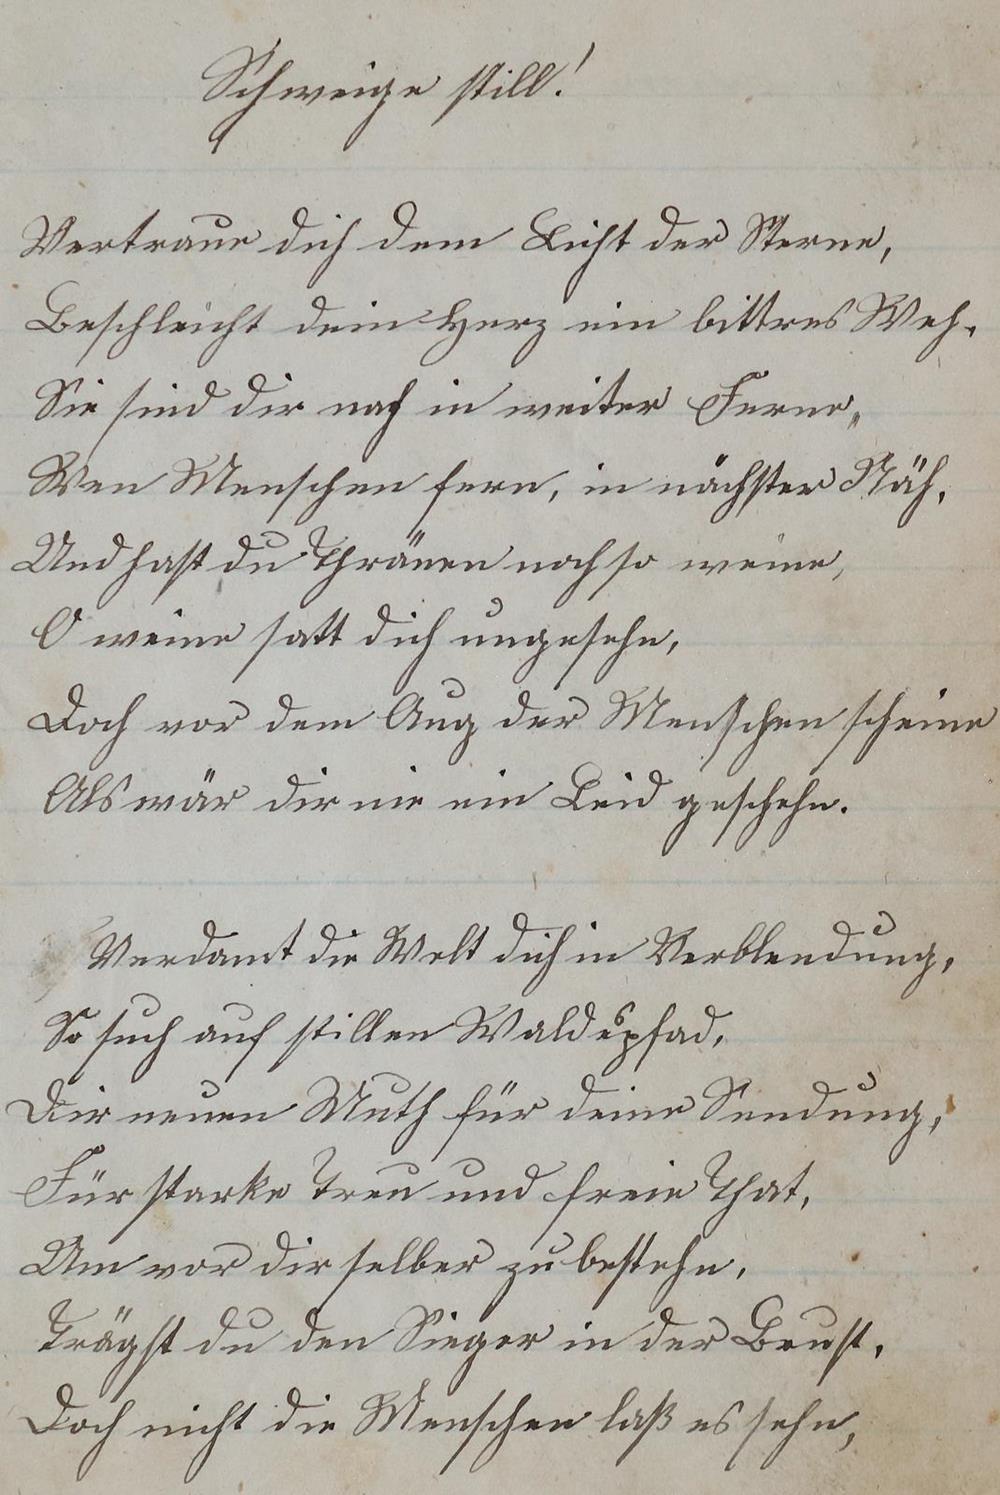 Schweige still!
Vertraue dich dem Licht der Sterne,
Beschleicht dein Herz ein bittres Weh.
Sie sind dir nah in weiter Ferne,
Wen Menschen fern, in nächster Näh.
Und hast du Thränen noch so weine,
O weine satt dich ungesehn,
Doch vor dem Aug der Menschen scheine
Als wär dir nie ein Leid geschehn.
Verdamt die Welt dich in Verblendung,
So such auf stillen Waldespfad,
Dir neuen Muth für deine Sendung,
Für starke Treu und freie That,
Um vor dir selber zu bestehn,
Trägst du den Sieger in der Brust,
Doch nicht die Menschen laß es sehn,